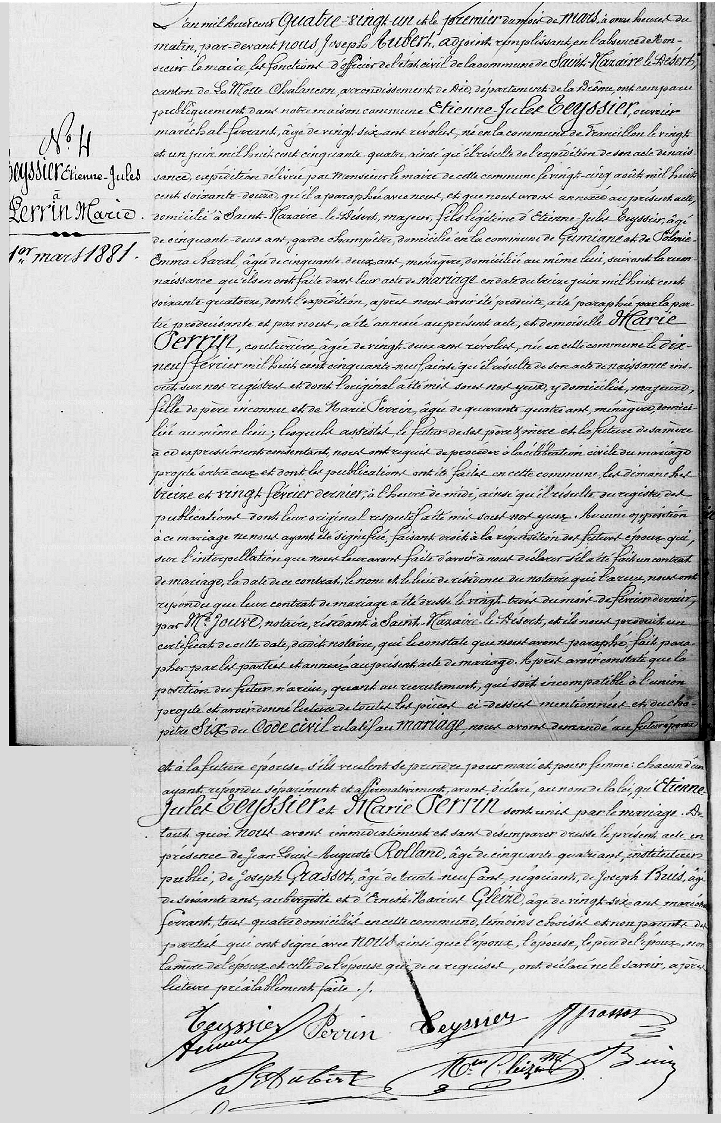 N.° 4
Teyssier Etienne-Jules
à
Perrin Marie.
1er mars 1881.
L'an mil huit cent quatre-vingt-un et le premier du mois de mars, à onze heures du
matin, par-devant nous Joseph Aubert, adjoint remplissant, en l'absence de Mon-
sieur le maire, les fonctions d'officier de l'état civil de la commune de Saint-Nazaire le Désert,
canton de La Motte Chalancon, arrondissement de Die, département de la Drôme, ont comparu
publiquement dans notre maison commune Etienne-Jules Teyssier, ouvrier
maréchal-ferrant, âgé de vingt-six ans révolus, né en la commune de Francillon le vingt
et un juin mil huit cent cinquante quatre, ainsi qu'il résulte de l'expédition de son acte de nais-
sance, expédition délivrée par Monsieur le maire de cette commune le vingt-cinq août mil huit
cent soixante-douze, qu'il a paraphée avec nous, et que nous avons annexée au présent acte,
domicilié à Saint-Nazaire-le-Désert, majeur, fils légitime d'Etienne Jules Teyssier, âgé
de cinquante-deux ans, garde champêtre, domicilié en la commune de Gumiane et de
Emma Naral, âgée de cinquante deux ans, ménagère, domiciliée au même lieu, suivant la recon-
naissance qu'ils en ont faite dans leur acte de mariage en date du treize juin mil huit cent
soixante-quatorze, dont l'expédition, après nous avoir été produite, a été paraphée par la par-
tie produisante et par nous, a été annexée au présent acte, et demoiselle Marie
Perrin, couturière, âgée de vingt-deux ans révolus, née en cette commune le dix-
neuf février mil huit cent cinquante-neuf ainsi qu'il résulte de son acte de naissance ins-
crit sur nos registres et dont l'original a été mis sous nos yeux, y domiciliée, majeure,
fille de père inconnu et de Marie Perrin, âgée de quarante quatre ans, ménagère, domici-
liée au même lieu; lesquels assistés, le futur de ses père & mère et la future de sa mère
à ce expressément consentant, nous ont requis de procéder à la célébration civile du mariage
projeté entre eux et dont les publications ont été faites en cette commune, les dimanches
treize et vingt février dernier, à l'heure de midi, ainsi qu'il résulte du registre des
publications dont leur original respectif a été mis sous nos yeux. Aucune opposition
à ce mariage ne nous ayant été signifiée, faisant droit à la réquisition des futurs époux qui,
sur l'interpellation que nous leur avons faite d'avoir à nous déclarer s'il a été fait un contrat
de mariage, la date de ce contrat, le nom et le lieu de résidence du notaire qui l'a reçu, nous ont
répondu que leur contrat de mariage a été dressé le vingt-trois du mois de février dernier,
par Me Jouve, notaire, résidant à Saint-Nazaire-le-Désert, et ils nous produit un
certificat de cette date, dudit notaire, qui le constate que nous avons paraphé, fait para-
pher par les parties et annexé au présent acte de mariage. Après avoir constaté que la
position du futur n'a rien, quant au recrutement, qui soit incompatible à l'union
projetée et avoir donné lecture de toutes les pièces ci-dessus mentionnées et du cha-
pitre Six du Code civil relatif au mariage, nous avons demandé au futur époux
et à la future épouse s'ils veulent se prendre pour mari et pour femme: chacun d'eux
ayant répondu séparément et affirmativement, avons déclaré, au nom de la loi, que Etienne-
Jules Teyssier et Marie Perrin sont unis par le mariage. De
tout quoi nous avons immédiatement et sans désemparer dressé le présent acte en
présence de Jean-Louis-Auguste Rolland, âgé de cinquante-quatre ans, instituteur
public, de Joseph Grassot, âgé de trente-neuf ans, négociant, de Joseph Buis, âgé
de soixante ans, aubergiste et d'Ernest-Marius Gleize, âgé de vingt-six ans, maréchal
ferrant, tous quatre domiciliés en cette commune, témoins choisis et non parents des
parties qui ont signé avec nous ainsi que l'époux, l'épouse, le père de l'époux, non
la mère de l'époux et celle de l'épouse qui, de ce requises, ont déclaré ne le savoir, après
lecture préalablement faite ./.
Teyssier Perrin Teyssier Grassot
J. Aubert Buis